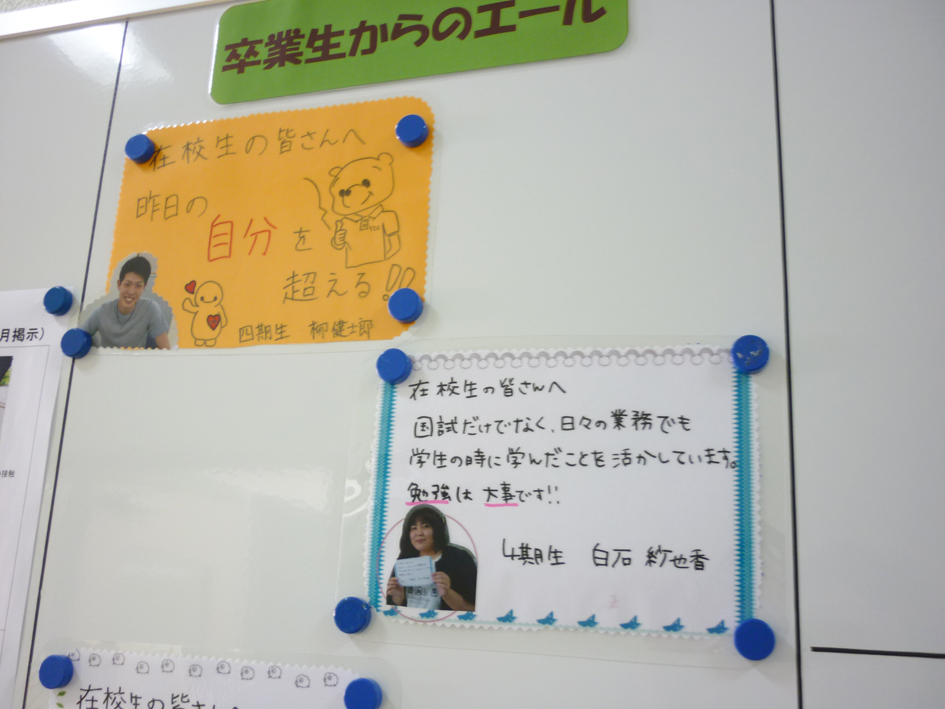 卒業生からのエール
在校生の皆さんへ
昨日の
自分を
超える!!
四期生 柳健士郎
月掲示)
在校生の皆さんへ
国試だけでなく、日々の業務でも
学生の時に学んだことを活かしています。
勉強は大事です!!
4期生 白石 紗也香
在校生の皆さんへ